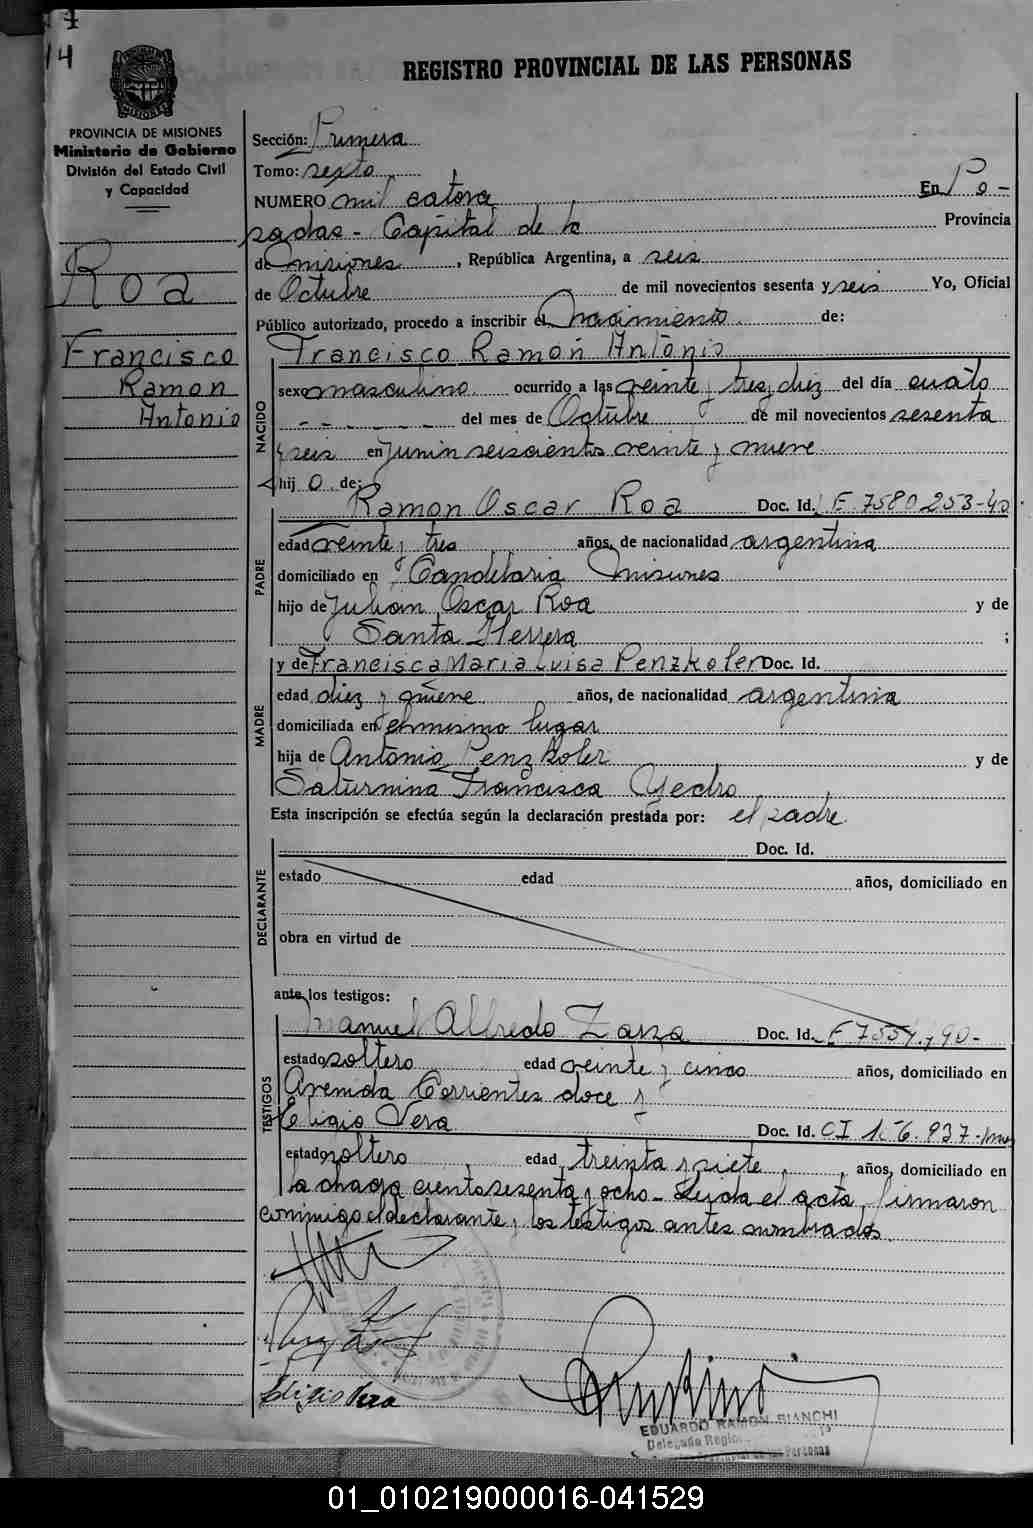 14
REGISTRO PROVINCIAL DE LAS PERSONAS
PROVINCIA DE MISIONES
Ministerio de Gobierno
División del Estado Civil
y Capacidad
Roa
Francisco
Ramon
Antonio
Sección: Primera
Tomo: sexto
NUMERO mil catorce En Po-
sadas - Capital de la Provincia
de Misiones, República Argentina, a seis
de Octubre de mil novecientos sesenta y seis Yo, Oficial
Público autorizado, procedo a inscribir el Nacimiento de:
Francisco Ramón Antonio
NACIDO
sexo masculino ocurrido a las veinte y tres y diez del día cuatro
- - - - - - del mes de Octubre de mil novecientos sesenta
y seis en Junin seiscientos veinte y nueve
hij o de:
PADRE
Ramon Oscar Roa Doc. Id. LE. 7580253-
edad veinte y tres años, de nacionalidad argentina
domiciliado en Candelaria Misiones
hijo de Julián Oscar Roa y de
Santa Herrera ;
MADRE
y de Francisca Maria Luisa Penzkofer Doc. Id.
edad diez y nueve años, de nacionalidad argentina
domiciliada en el mismo lugar
hija de Antonio Penzkofer y de
Saturnina Francisca Yedro
Esta inscripción se efectúa según la declaración prestada por: el padre
DECLARANTE
Doc. Id.
estado edad años, domiciliado en
obra en virtud de
ante los testigos:
TESTIGOS
Manuel Alfredo Zarza Doc. Id.
estado soltero edad veinte y cinco años, domiciliado en
Avenida Corrientes doce y
Eligio Vera Doc. Id. CI
estado soltero edad treinta y siete, años, domiciliado en
la chacra ciento sesenta y ocho - Leida el acta firmaron
conmigo el declarante y los testigos antes nombrados.
Eligio Vera
EDUARDO RAMON BIANCHI
01_010219000016-041529